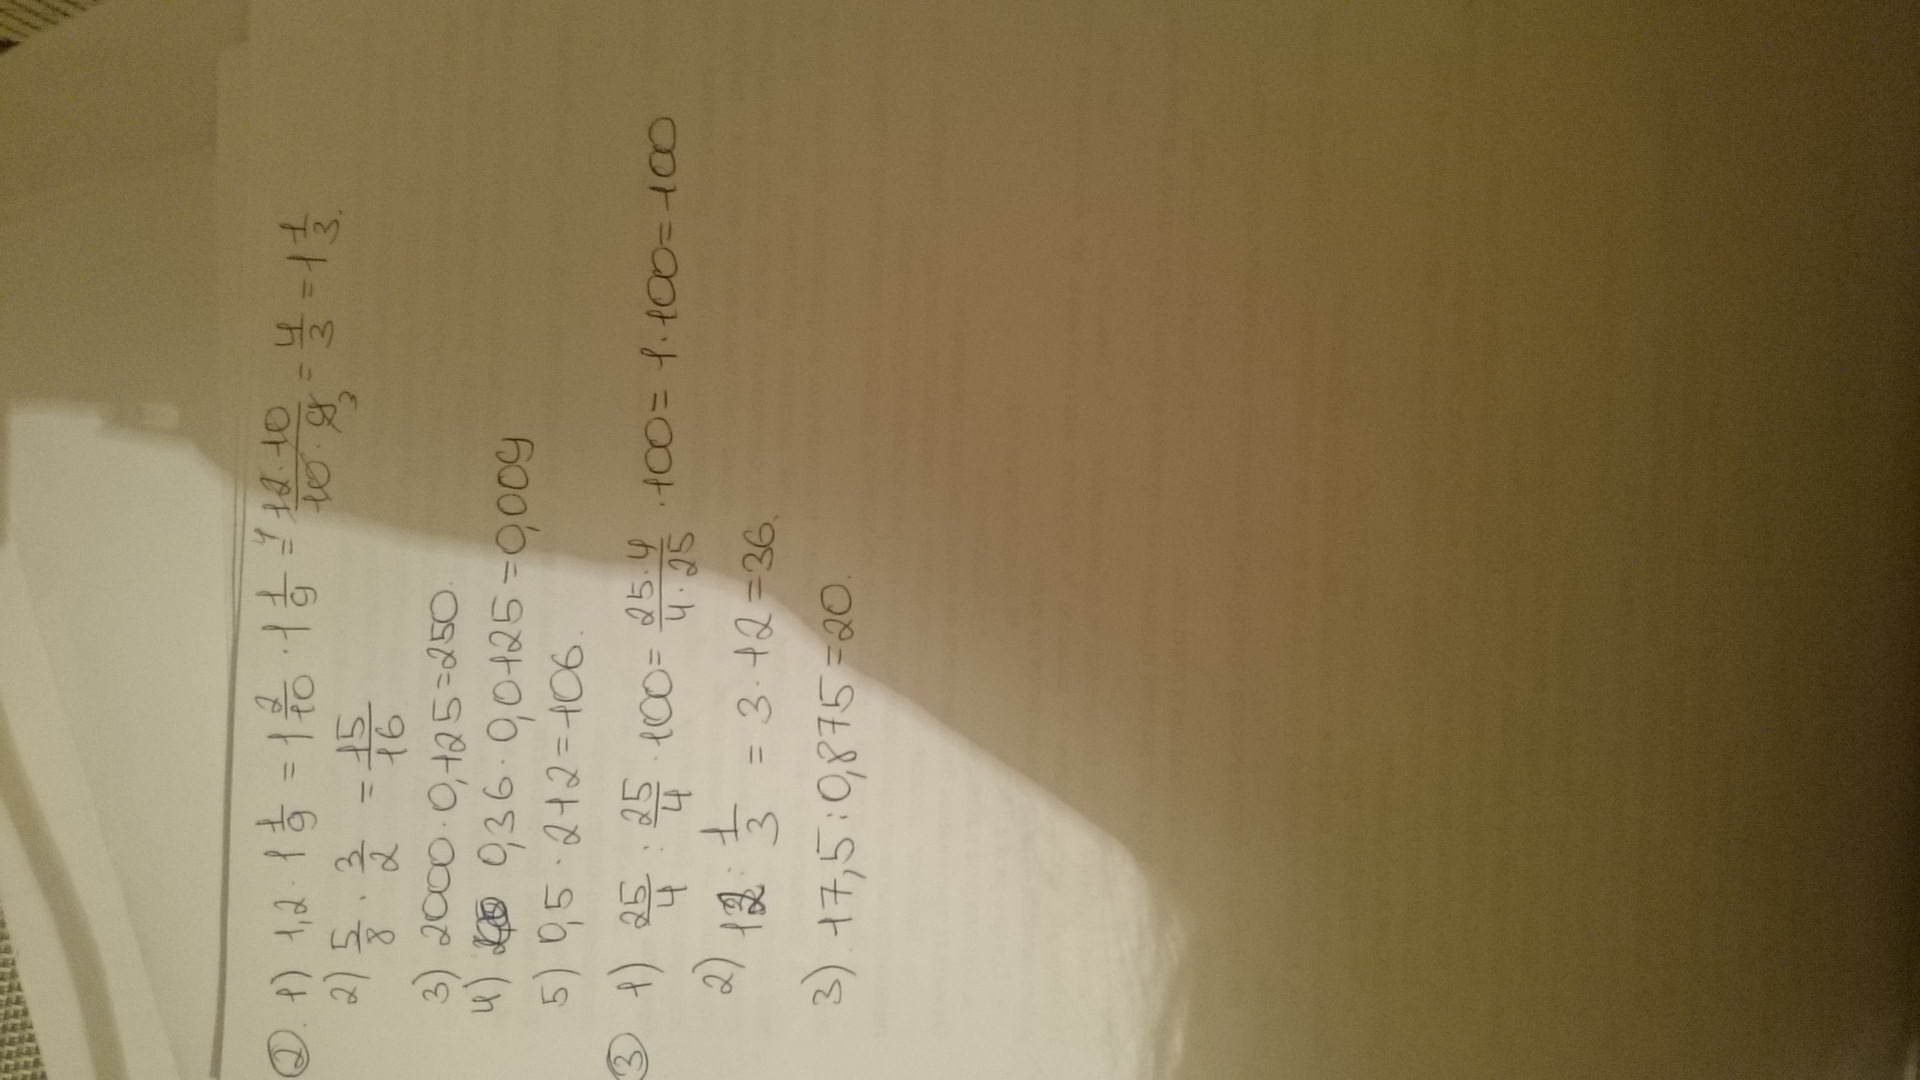 ② 1) 1,2 · 1 1/9 = 1 2/10 · 1 1/9 = (12 · 10)/(10 · 9) = 4/3 = 1 1/3.
2) 5/8 · 3/2 = 15/16
3) 2000 · 0,125 = 250.
4) 0,36 · 0,0125 = 0,009
5) 0,5 · 212 = 106.
③ 1) 25/4 : 25/4 · 100 = (25 · 4)/(4 · 25) · 100 = 1 · 100 = 100
2) 12 : 1/3 = 3 · 12 = 36.
3) 17,5 : 0,875 = 20.